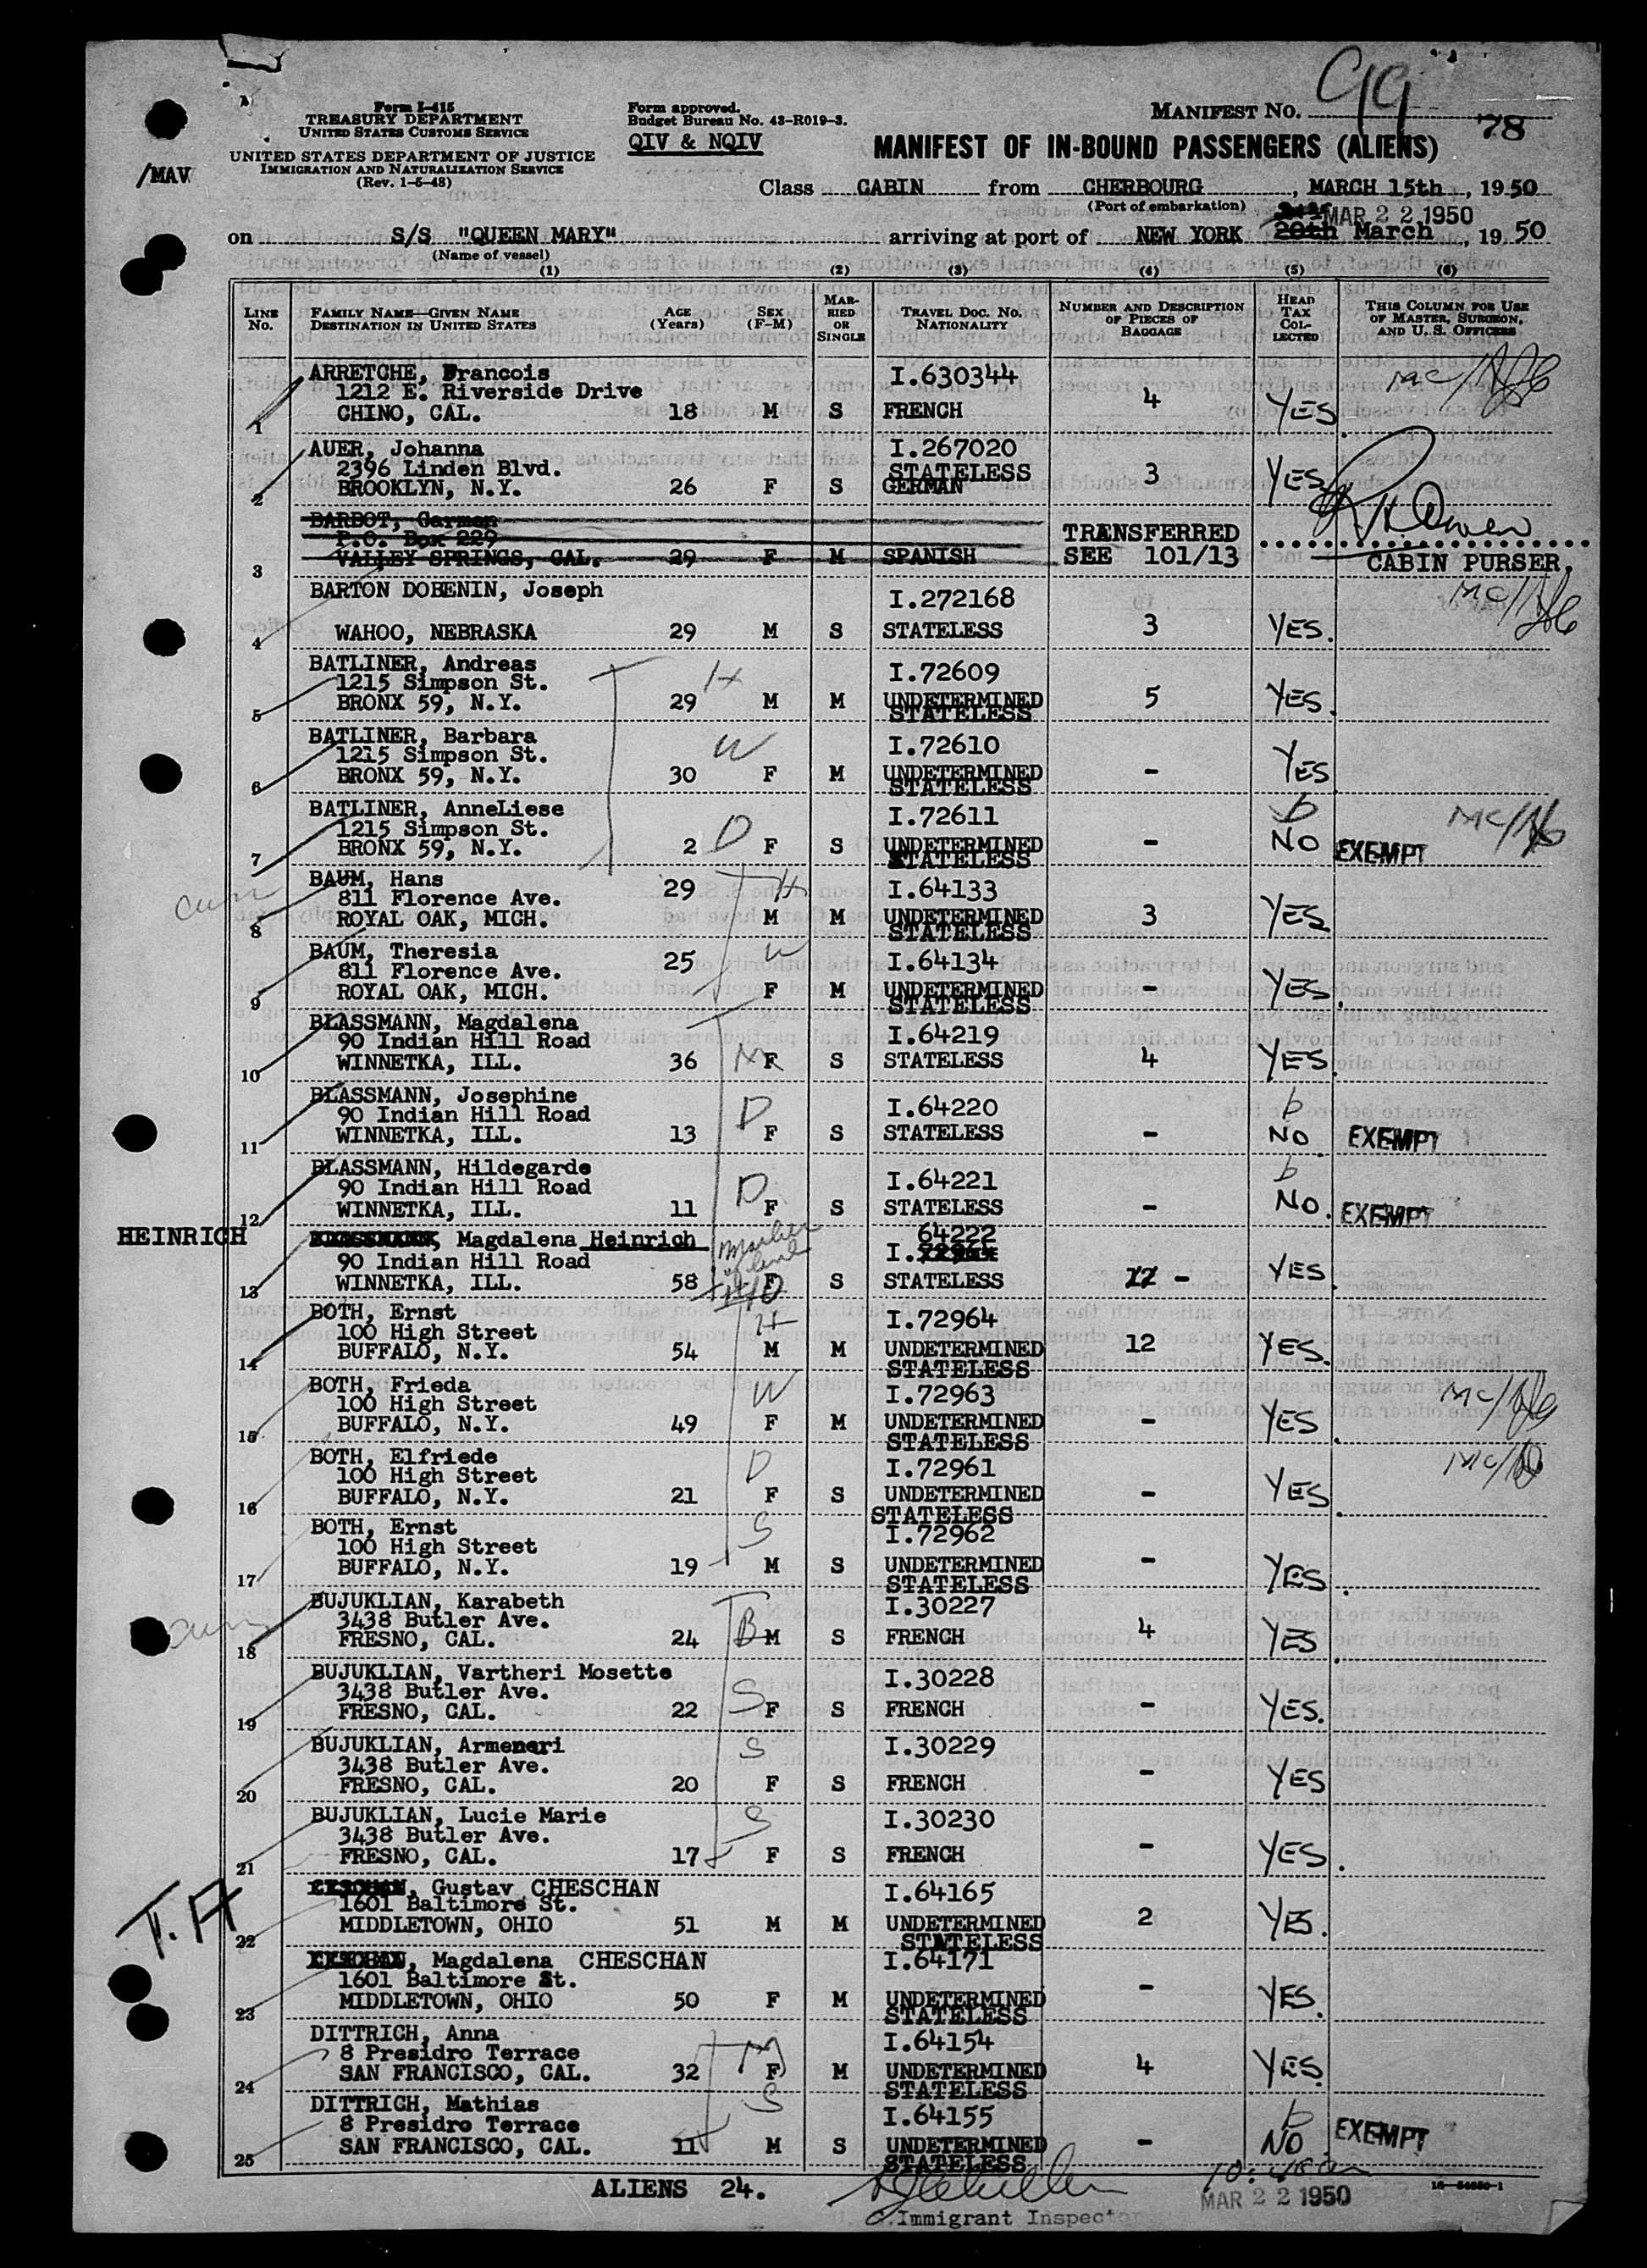 Form I-415
TREASURY DEPARTMENT
UNITED STATES CUSTOMS SERVICE
UNITED STATES DEPARTMENT OF JUSTICE
IMMIGRATION AND NATURALIZATION SERVICE
(Rev. 1-5-48)
/MAV
Form approved.
Budget Bureau No. 43-R019-3.
QIV & NQIV
MANIFEST NO. 99
78
MANIFEST OF IN-BOUND PASSENGERS (ALIENS)
Class CABIN from CHERBOURG, MARCH 15th, 1950
(Port of embarkation)
MAR 22 1950
on S/S "QUEEN MARY" arriving at port of NEW YORK 20th March, 1950
(Name of vessel)
(1) (2) (3) (4) (5) (6)
LINE No. FAMILY NAME—GIVEN NAME DESTINATION IN UNITED STATES AGE (Years) SEX (F-M) MARRIED OR SINGLE TRAVEL DOC. NO. NATIONALITY NUMBER AND DESCRIPTION OF PIECES OF BAGGAGE HEAD TAX COLLECTED THIS COLUMN FOR USE OF MASTER, SURGEON, AND U. S. OFFICERS
ARRETCHE, Francois I.630344
1212 E. Riverside Drive
1 CHINO, CAL. 18 M S FRENCH 4 YES
AUER, Johanna I.267020
2396 Linden Blvd. STATELESS
2 BROOKLYN, N.Y. 26 F S GERMAN 3 YES
BARBOT, Carmen
P.O. Box 229 TRANSFERRED
3 VALLEY SPRINGS, CAL. 29 F M SPANISH SEE 101/13
CABIN PURSER.
BARTON DOBENIN, Joseph I.272168
4 WAHOO, NEBRASKA 29 M S STATELESS 3 YES.
BATLINER, Andreas I.72609
1215 Simpson St. H
5 BRONX 59, N.Y. 29 M M UNDETERMINED 5 YES.
STATELESS
BATLINER, Barbara I.72610
1215 Simpson St. W
6 BRONX 59, N.Y. 30 F M UNDETERMINED - YES
STATELESS
BATLINER, AnneLiese I.72611
1215 Simpson St. D
7 BRONX 59, N.Y. 2 F S UNDETERMINED - NO EXEMPT
STATELESS
BAUM, Hans 29 H I.64133
811 Florence Ave.
8 ROYAL OAK, MICH. M M UNDETERMINED 3 YES
STATELESS
BAUM, Theresia 25 W I.64134
811 Florence Ave.
9 ROYAL OAK, MICH. F M UNDETERMINED - YES.
STATELESS
BLASSMANN, Magdalena I.64219
90 Indian Hill Road
10 WINNETKA, ILL. 36 M F S STATELESS 4 YES.
BLASSMANN, Josephine I.64220
90 Indian Hill Road D
11 WINNETKA, ILL. 13 F S STATELESS - NO EXEMPT
BLASSMANN, Hildegarde I.64221
90 Indian Hill Road D
12 WINNETKA, ILL. 11 F S STATELESS - NO. EXEMPT
HEINRICH Magdalena Heinrich I.64222
90 Indian Hill Road
13 WINNETKA, ILL. 58 F S STATELESS - YES.
BOTH, Ernst H I.72964
100 High Street
14 BUFFALO, N.Y. 54 M M UNDETERMINED 12 YES.
STATELESS
BOTH, Frieda W I.72963
100 High Street
15 BUFFALO, N.Y. 49 F M UNDETERMINED - YES
STATELESS
BOTH, Elfriede D I.72961
100 High Street
16 BUFFALO, N.Y. 21 F S UNDETERMINED - YES
STATELESS
BOTH, Ernst S I.72962
100 High Street
17 BUFFALO, N.Y. 19 M S UNDETERMINED - YES.
STATELESS
BUJUKLIAN, Karabeth I.30227
3438 Butler Ave.
18 FRESNO, CAL. 24 B M S FRENCH 4 YES
BUJUKLIAN, Vartheri Mosette I.30228
3438 Butler Ave. S
19 FRESNO, CAL. 22 F S FRENCH - YES.
BUJUKLIAN, Armeneri S I.30229
3438 Butler Ave.
20 FRESNO, CAL. 20 F S FRENCH - YES
BUJUKLIAN, Lucie Marie S I.30230
3438 Butler Ave.
21 FRESNO, CAL. 17 F S FRENCH - YES.
T.A
Gustav CHESCHAN I.64165
1601 Baltimore St.
22 MIDDLETOWN, OHIO 51 M M UNDETERMINED 2 YES.
STATELESS
Magdalena CHESCHAN I.64171
1601 Baltimore St.
23 MIDDLETOWN, OHIO 50 F M UNDETERMINED - YES.
STATELESS
DITTRICH, Anna I.64154
8 Presidro Terrace M
24 SAN FRANCISCO, CAL. 32 F M UNDETERMINED 4 YES.
STATELESS
DITTRICH, Mathias S I.64155
8 Presidro Terrace
25 SAN FRANCISCO, CAL. 11 M S UNDETERMINED - NO. EXEMPT
STATELESS
ALIENS 24.
MAR 22 1950
16-54650-1
Immigrant Inspector